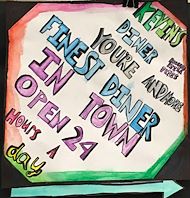 KEVINS
DINER
YOURE
FINEST DINER
IN TOWN
OPEN 24
HOURS A
day